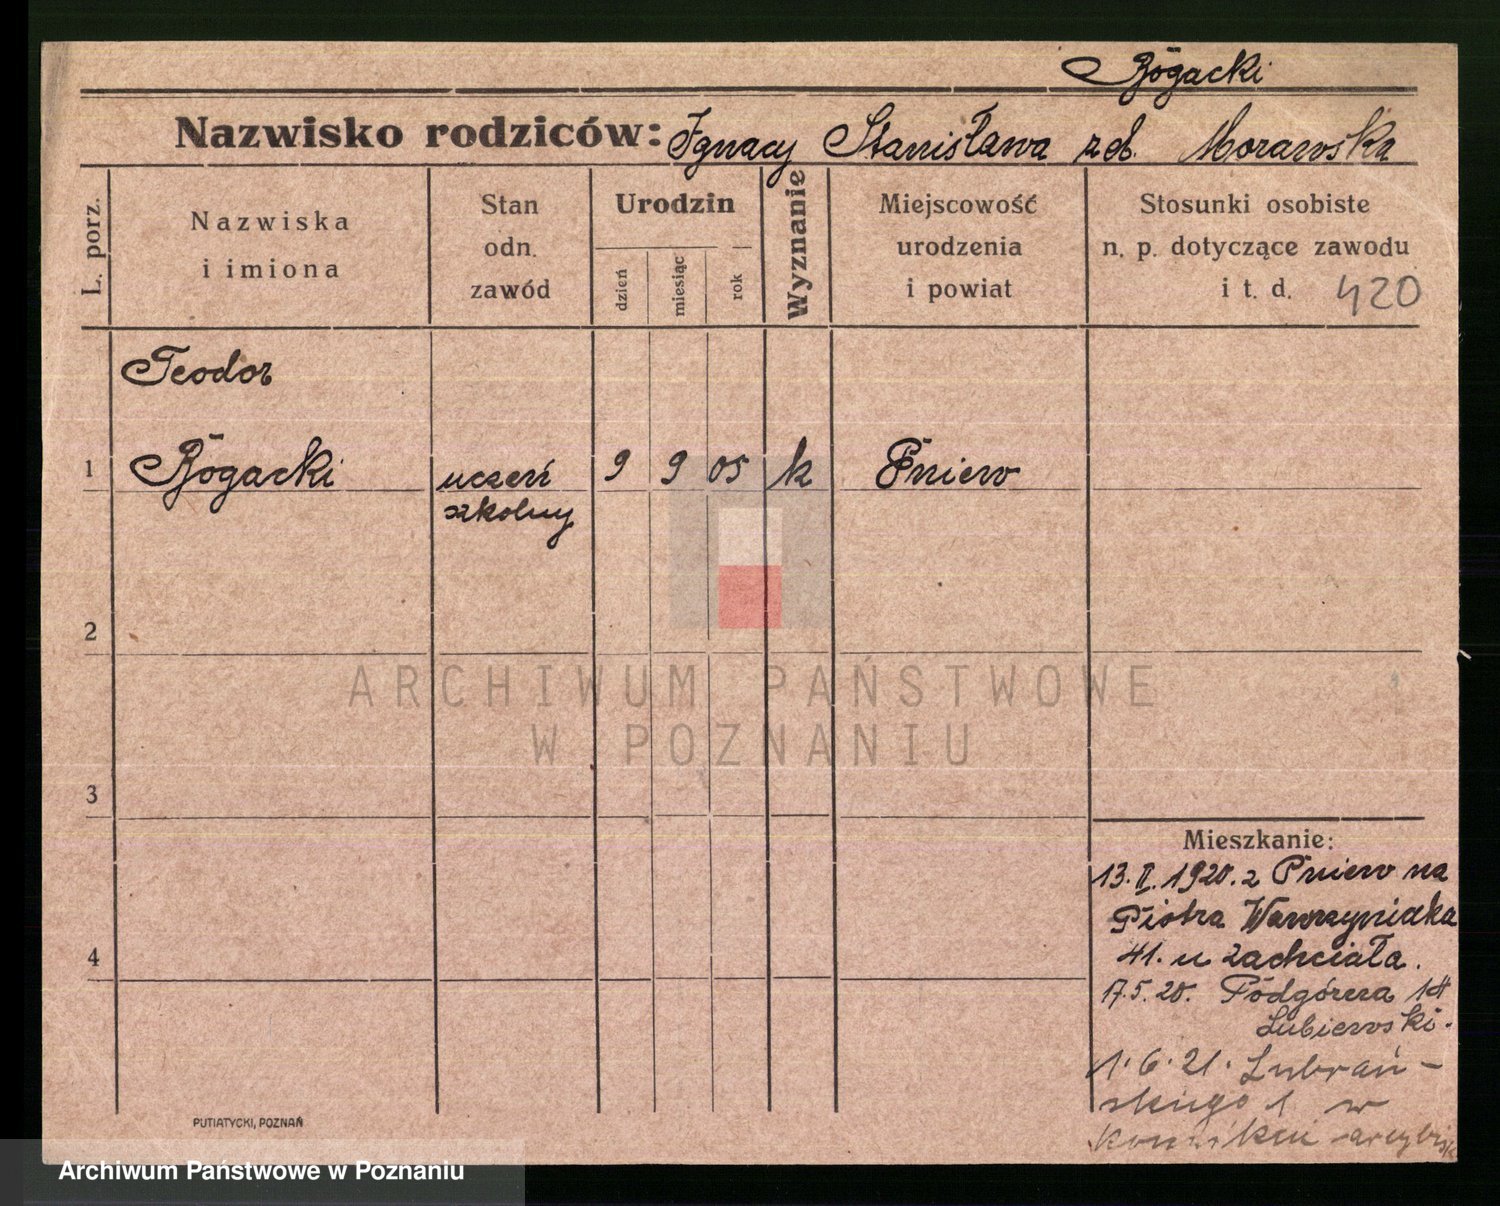 Bogacki
Nazwisko rodziców: Ignacy Stanisława zd. Morawska
L. porz.
Nazwiska
i imiona
Stan
odn.
zawód
Urodzin
dzień
miesiąc
rok
Wyznanie
Miejscowość
urodzenia
i powiat
Stosunki osobiste
n. p. dotyczące zawodu
i t. d. 420
Teodor
1 Bogacki uczeń 9 9 05 k Pniew
szkolny
2
ARCHIWUM PAŃSTWOWE
W POZNANIU
3
Mieszkanie:
13.II.1920. z Pniew na
Piotra Wawrzyniaka
4
41. u Zachciała.
17.5.20. Podgórna 14
Lubiewski.
1.6.21. Lubrań-
skiego 1 w
PUTIATYCKI, POZNAŃ
Archiwum Państwowe w Poznaniu